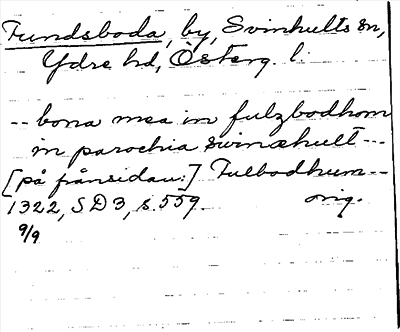 Fundsboda, by, Svinhults sn,
Ydre hd, Österg. l.
-- bona mea in fulzbodhom
in parochia swinæhult ---
[på frånsidan:] Fulbodhum --
1322, SD3, s. 559. orig.
9/9